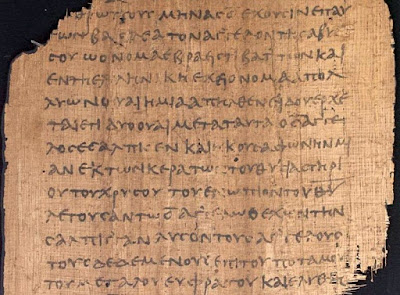 ΠΟΥϹ ΜΗΝΑϹ Ε ΕΧΟΥϹΙΝ ΕΠ ΑΥ
ΤΩΝ ΒΑϹΙΛΕΑ ΤΟΝ ΑΓΓΕΛΟΝ ΤΗϹ ΑΒΥϹ
ϹΟΥ Ω ΟΝΟΜΑ ΕΒΡΑΕΙϹΤΙ ΒΑΤΤΩΝ ΚΑΙ
ΕΝ ΤΗ ΕΛΛΗΝΙΚΗ ΕΧΕΙ ΟΝΟΜΑ ΑΠΟΛ
ΛΥΩΝ ΟΥΑΙ Η ΜΙΑ ΑΠΗΛΘΕΝ ΕΙΔΟΥ ΕΡΧΕ
ΤΑΙ ΕΤΙ ΔΥΟ ΟΥΑΙ ΜΕΤΑ ΤΑΥΤΑ Ο Ϛ ΑΓΓΕ
ΛΟϹ ΕϹΑΛΠΙϹΕΝ ΚΑΙ ΗΚΟΥϹΑ ΦΩΝΗΝ ΜΙ
ΑΝ ΕΚ ΤΩΝ ΚΕΡΑΤΩΝ ΤΟΥ ΘΥϹΙΑϹΤΗΡΙ
ΟΥ ΤΟΥ ΧΡΥϹΟΥ ΤΟΥ ΕΝΩΠΙΟΝ ΤΟΥ ΘΥ
ΛΕΓΟΥϹΑΝ ΤΩ Ϛ ΑΓΓΕΛΩ Ο ΕΧΩΝ ΤΗΝ
ϹΑΛΠΙΓΓΑΝ ΛΥϹΟΝ ΤΟΥϹ ΑΓΓΕΛΟΥϹ
ΤΟΥϹ ΔΕΔΕΜΕΝΟΥϹ ΕΠΙ ΤΟΥ ΠΟΤΑΜΟΥ
ΤΟΥ ΜΕΓΑΛΟΥ ΕΥΦΡΑΤΟΥ ΚΑΙ ΕΛΥΘΗ